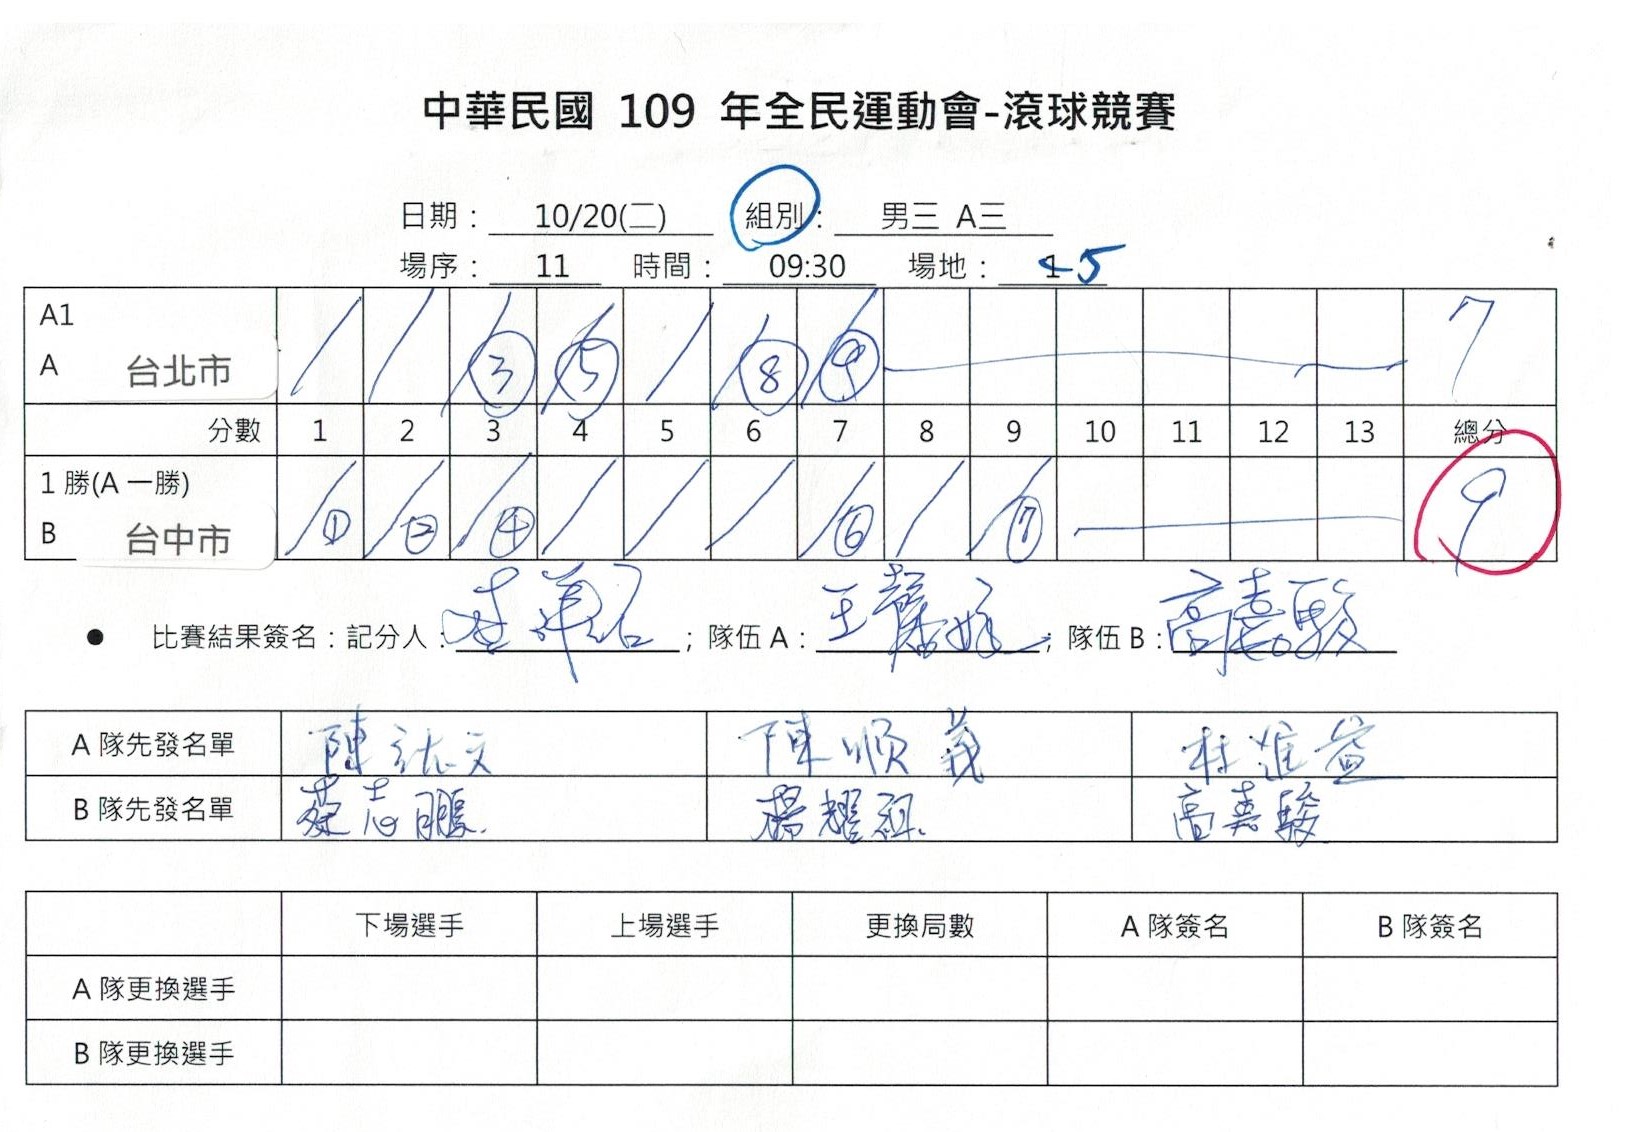 中華民國 109 年全民運動會-滾球競賽
日期： 10/20(二) 組別： 男三 A三
場序： 11 時間： 09:30 場地： 1 5
A1
A 台北市 / / /③ /⑤ / /⑧ /⑨ 7
分數 1 2 3 4 5 6 7 8 9 10 11 12 13 總分
1 勝(A 一勝)
B 台中市 /① /② /④ / / / /⑥ / /⑦ 9
● 比賽結果簽名：記分人： ；隊伍 A： ；隊伍 B：高嘉駿
A 隊先發名單 陳 文 陳順義 杜進益
B 隊先發名單 蔡志鵬 楊耀祖 高嘉駿
下場選手 上場選手 更換局數 A 隊簽名 B 隊簽名
A 隊更換選手
B 隊更換選手